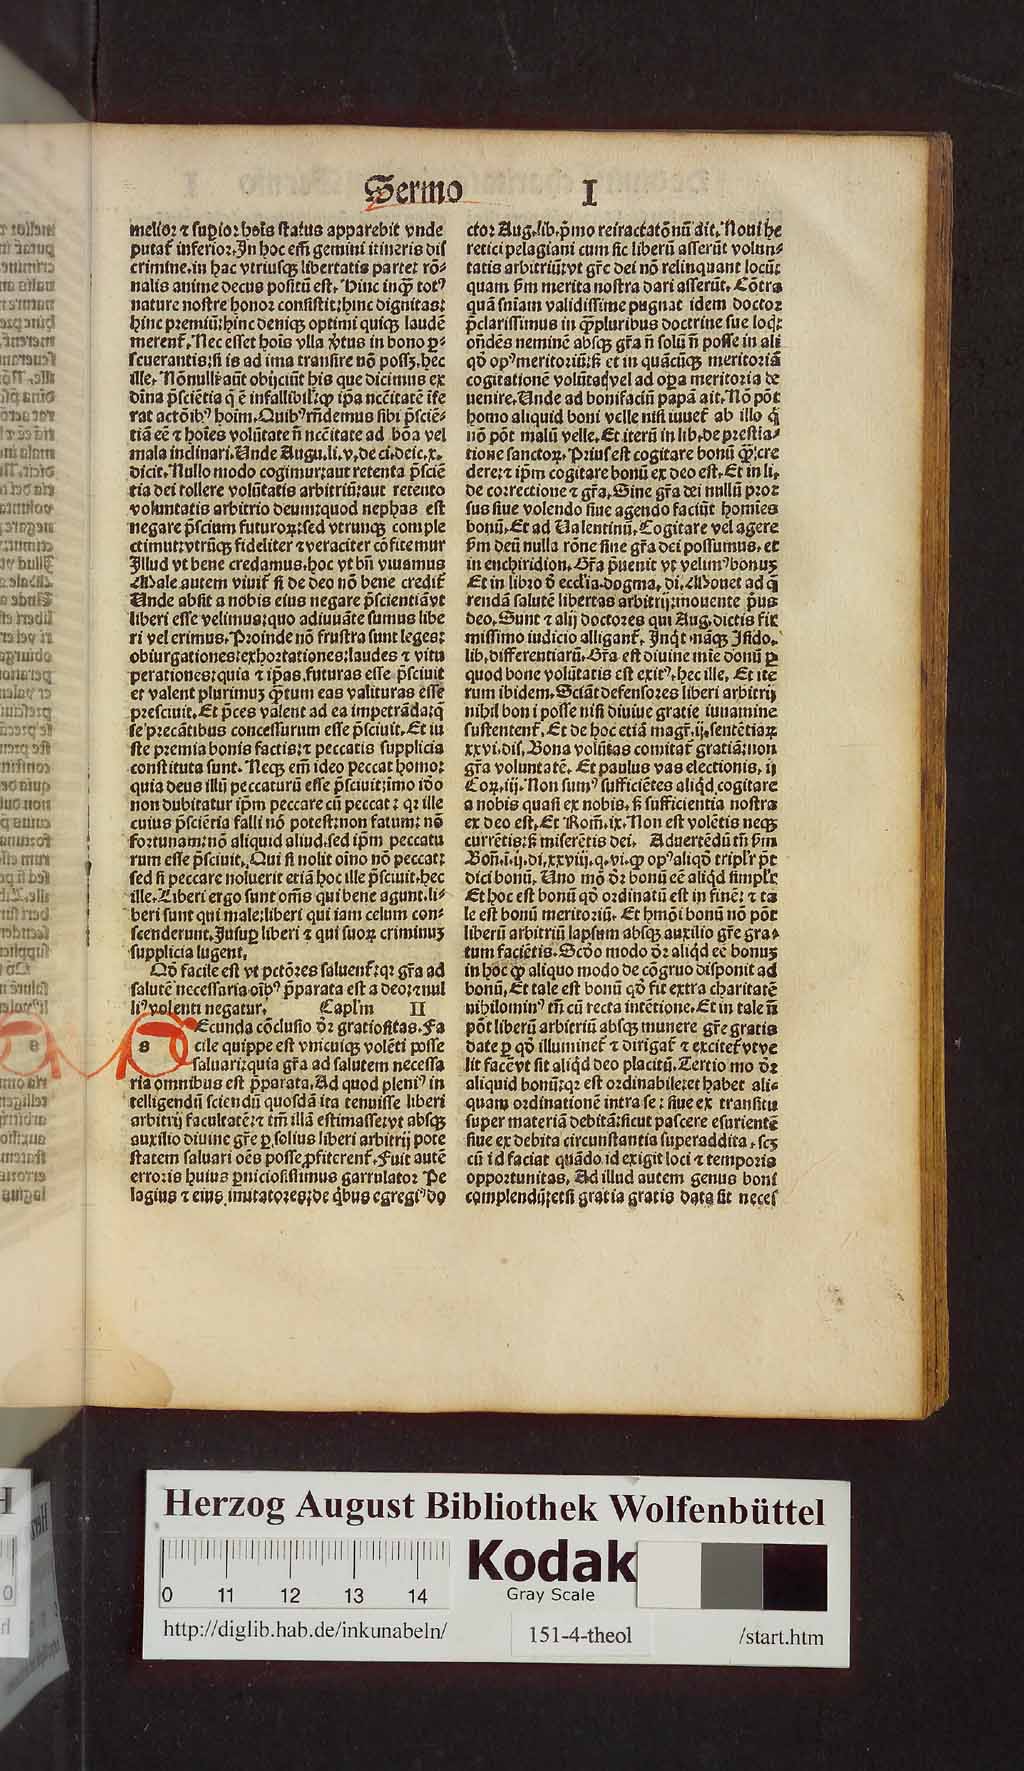 Sermo I
melior ⁊ supior hoīs status apparebit vnde
putat᷑ inferior. In hoc em̄ gemini itineris dis
crimine. in hac vtriusqꝫ libertatis parte: rō⸗
nalis anime decus positū est. Hinc inqͣꝫ totꝰ
nature nostre honor consistit: hinc dignitas:
hinc premiū: hinc deniqꝫ optimi quiqꝫ laudē
merent᷑. Nec esset hoīs vlla v̓tus in bono ꝑ⸗
seuerantis: si is ad ima transire nō possꝫ. hec
ille. Nōnulli aūt obijciūt his que dicimus ex
diīna p̄sciētia q̄ ē infallibil̓: ꝙ ip̄a nc̄citatē īfe
rat actōibꝰ hoim. Quibꝰ rn̄demus sibi p̄sciē⸗
tiā eē ⁊ hoīes volūtate n̄ nc̄citate ad bōa vel
mala inclinari. Unde Augu. li. v. de ci. dei. c. x.
dicit. Nullo modo cogimur: aut retenta p̄sciē
tia dei tollere volūtatis arbitriū: aut retento
voluntatis arbitrio deum: quod nephas est
negare p̄scium futuroꝝ: sed vtrunqꝫ comple
ctimur: vtrūqꝫ fideliter ⁊ veraciter cōfitemur
Illud vt bene credamus. hoc vt bn̄ viuamus
Male autem viuit᷑ si de deo nō bene credit᷑
Unde absit a nobis eius negare p̄scientiā vt
liberi esse velimus: quo adiuuāte sumus libe
ri vel erimus. Proinde nō frustra sunt leges:
obiurgationes: exhortationes: laudes ⁊ vitu
perationes: quia ⁊ ip̄as futuras esse p̄sciuit
et valent plurimuꝫ qͣꝫtum eas valituras esse
presciuit. Et p̄ces valent ad ea impetrāda: q̄
se precātibus concessurum esse p̄sciuit. Et iu
ste premia bonis factis: ⁊ peccatis supplicia
constituta sunt. Neqꝫ em̄ ideo peccat homo:
quia deus illū peccaturū esse p̄sciuit: imo iō̄o
non dubitatur ip̄m peccare cū peccat: qꝛ ille
cuius p̄sciētia falli nō potest: non fatum: nō
fortunam: nō aliquid aliud. sed ip̄m peccatu
rum esse p̄sciuit. Qui si nolit oīno nō peccat:
sed si peccare noluerit etiā hoc ille p̄sciuit. hec
ille. Liberi ergo sunt om̄s qui bene agunt. li⸗
beri sunt qui male: liberi qui iam celum con⸗
scenderunt. Insup liberi ⁊ qui suoꝝ criminuꝫ
supplicia lugent.
Qō facile est vt pctōres saluent᷑: qꝛ gr̄a ad
salutē necessaria oībꝰ p̄parata est a deo: ⁊ nul
liꝰ volenti negatur. Capl̓m II
s Ecunda cōclusio dr̄ gratiositas. Fa
cile quippe est vnicuiqꝫ volēti posse
saluari: quia gr̄a ad salutem necessa
ria omnibus est p̄parata. Ad quod pleniꝰ in
telligendū sciendū quosdā ita tenuisse liberi
arbitrij facultatē: ⁊ tm̄ illā estimasse: vt absqꝫ
auxilio diuine gr̄e ꝑ solius liberi arbitrij pote
statem saluari oēs posse ꝓfiterent᷑. Fuit autē
erroris huius ꝑniciosissimus garrulator Pe
lagius ⁊ eius imitatores: de qͥbus egregiꝰ do
ctor Aug. lib. p̄mo retractatōnū ait. Noui he
retici pelagiani cum sic liberū asserūt volun⸗
tatis arbitriū: vt gr̄e dei nō relinquant locū:
quam ẜm merita nostra dari asserūt. Cōtra
quā sn̄iam validissime pugnat idem doctor
p̄clarissimus in qͣꝫpluribus doctrine sue locꝭ:
ondēs neminē absqꝫ gr̄a n̄ solū n̄ posse in ali
qō opꝰ meritoriū: ß et in quācūqꝫ meritoriā
cogitationē volūtatꝭ vel ad opa meritoria de
uenire. Unde ad bonifaciū papā ait. Nō pōt
homo aliquid boni velle nisi iuuet᷑ ab illo qͥ
nō pōt malū velle. Et iterū in lib. de prestia⸗
tione sanctoꝝ. Prius est cogitare bonū qͣꝫ: cre
dere: ⁊ ip̄m cogitare bonū ex deo est. Et in li.
de correctione ⁊ gr̄a. Sine gr̄a dei nullū pror
sus siue volendo siue agendo faciūt homies
bonū. Et ad Ualentinū. Cogitare vel agere
ẜm deū nulla rōne sine gr̄a dei possumus. et
in enchiridion. Gr̄a p̄uenit vt velimꝰ bonuꝫ
Et in libro d̓ eccl̓ia. dogma. di. Mouet ad q̄
rendā salutē libertas arbitrij: mouente p̄us
deo. Sunt ⁊ alij doctores qui Aug. dictis fir
missimo iudicio alligant᷑. Inqͥt nāqꝫ Isido.
lib. differentiarū. Gr̄a est diuine mīe donū ꝑ
quod bone volūtatis est exitꝰ. hec ille. Et ite
rum ibidem. Sciāt defensores liberi arbitrij
nihil bon i posse nisi diuiue gratie iuuamine
sustentent᷑. Et de hoc etiā magr̄. ij. sentētiaꝝ
xxvi. dis. Bona volūtas comitat᷑ gratiā: non
gr̄a voluntatē. Et paulus vas electionis. ij
Coꝝ. iij. Non sumꝰ sufficiētes aliqͥd cogitare
a nobis quasi ex nobis. ß sufficientia nostra
ex deo est. Et Rom̄. ix. Non est volētis neqꝫ
currētis: ß miserētis dei. Aduertēdū tn̄ ẜm
Bon̄. ī. ij. di. xxviij. q. vi. ꝙ opꝰ aliqō tripl̓r p̄t
dici bonū. Uno mō dr̄ bonū eē aliqͥd simpl̓r
Et hoc est bonū qō ordinatū est in finē: ⁊ ta
le est bonū meritoriū. Et hmōi bonū nō pōt
liberū arbitriū lapsum absqꝫ auxilio gr̄e gra⸗
tum faciētis. Scdo modo dr̄ aliqͥd eē bonuꝫ
in hoc ꝙ aliquo modo de cōgruo disponit ad
bonū. Et tale est bonū qō fit extra charitatē
nihilominꝰ tn̄ cū recta intētione. Et in tale n̄
pōt liberū arbitriū absqꝫ munere gr̄e gratis
date ꝑ qō illuminet᷑ ⁊ dirigat᷑ ⁊ excitet᷑ vt ve
lit facē vt sit aliqͥd deo placitū. Tertio mo dr̄
aliquid bonū: qꝛ est ordinabile: et habet ali⸗
quam ordinationē intra se: siue ex transitu
super materiā debitā: sicut pascere esurientē
siue ex debita circunstantia superaddita. scꝫ
cū id faciat quādo id exigit loci ⁊ temporis
opportunitas. Ad illud autem genus boni
complendū: etsi gratia gratis data sit neces
Herzog August Bibliothek Wolfenbüttel
0 11 12 13 14
Kodak
Gray Scale
http://diglib.hab.de/inkunabeln/ 151-4-theol /start.htm